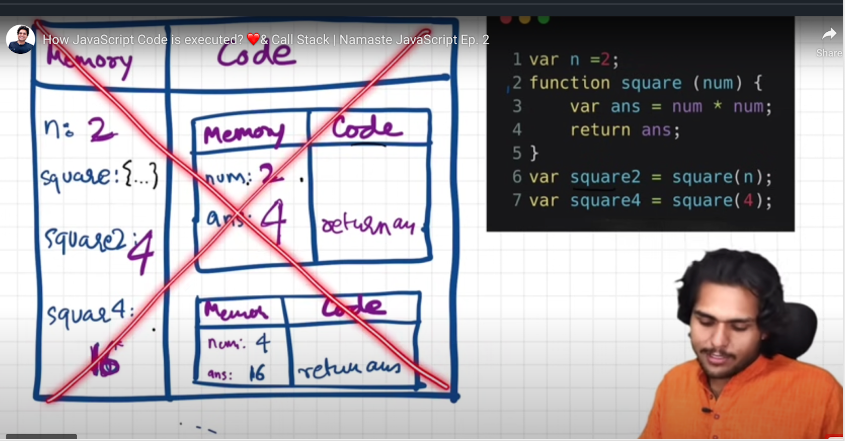 How JavaScript Code is executed? ❤️& Call Stack | Namaste JavaScript Ep. 2
Share
Memory
Code
n: 2
square:{...}
square2:4
squar4:
16
Memory
Code
num: 2
ans: 4
return an
Memor
Code
num: 4
ans: 16
return ans
1 var n =2;
2 function square (num) {
3 var ans = num * num;
4 return ans;
5 }
6 var square2 = square(n);
7 var square4 = square(4);